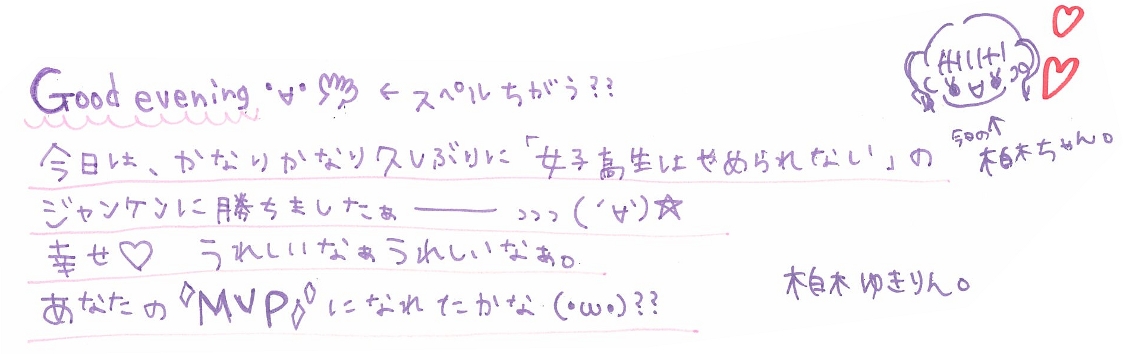 Good evening •∀• ← スペルちがう??
今日は、かなりかなり久しぶりに「女子高生はやめられない」の
ジャンケンに勝ちましたぁ―― >>> (´∀`)☆
幸せ♡ うれしいなぁうれしいなぁ。
あなたの◇MVP◇になれてたかな (•ω•)??
今日の↑
柏木ちゃん。
柏木ゆきりん。